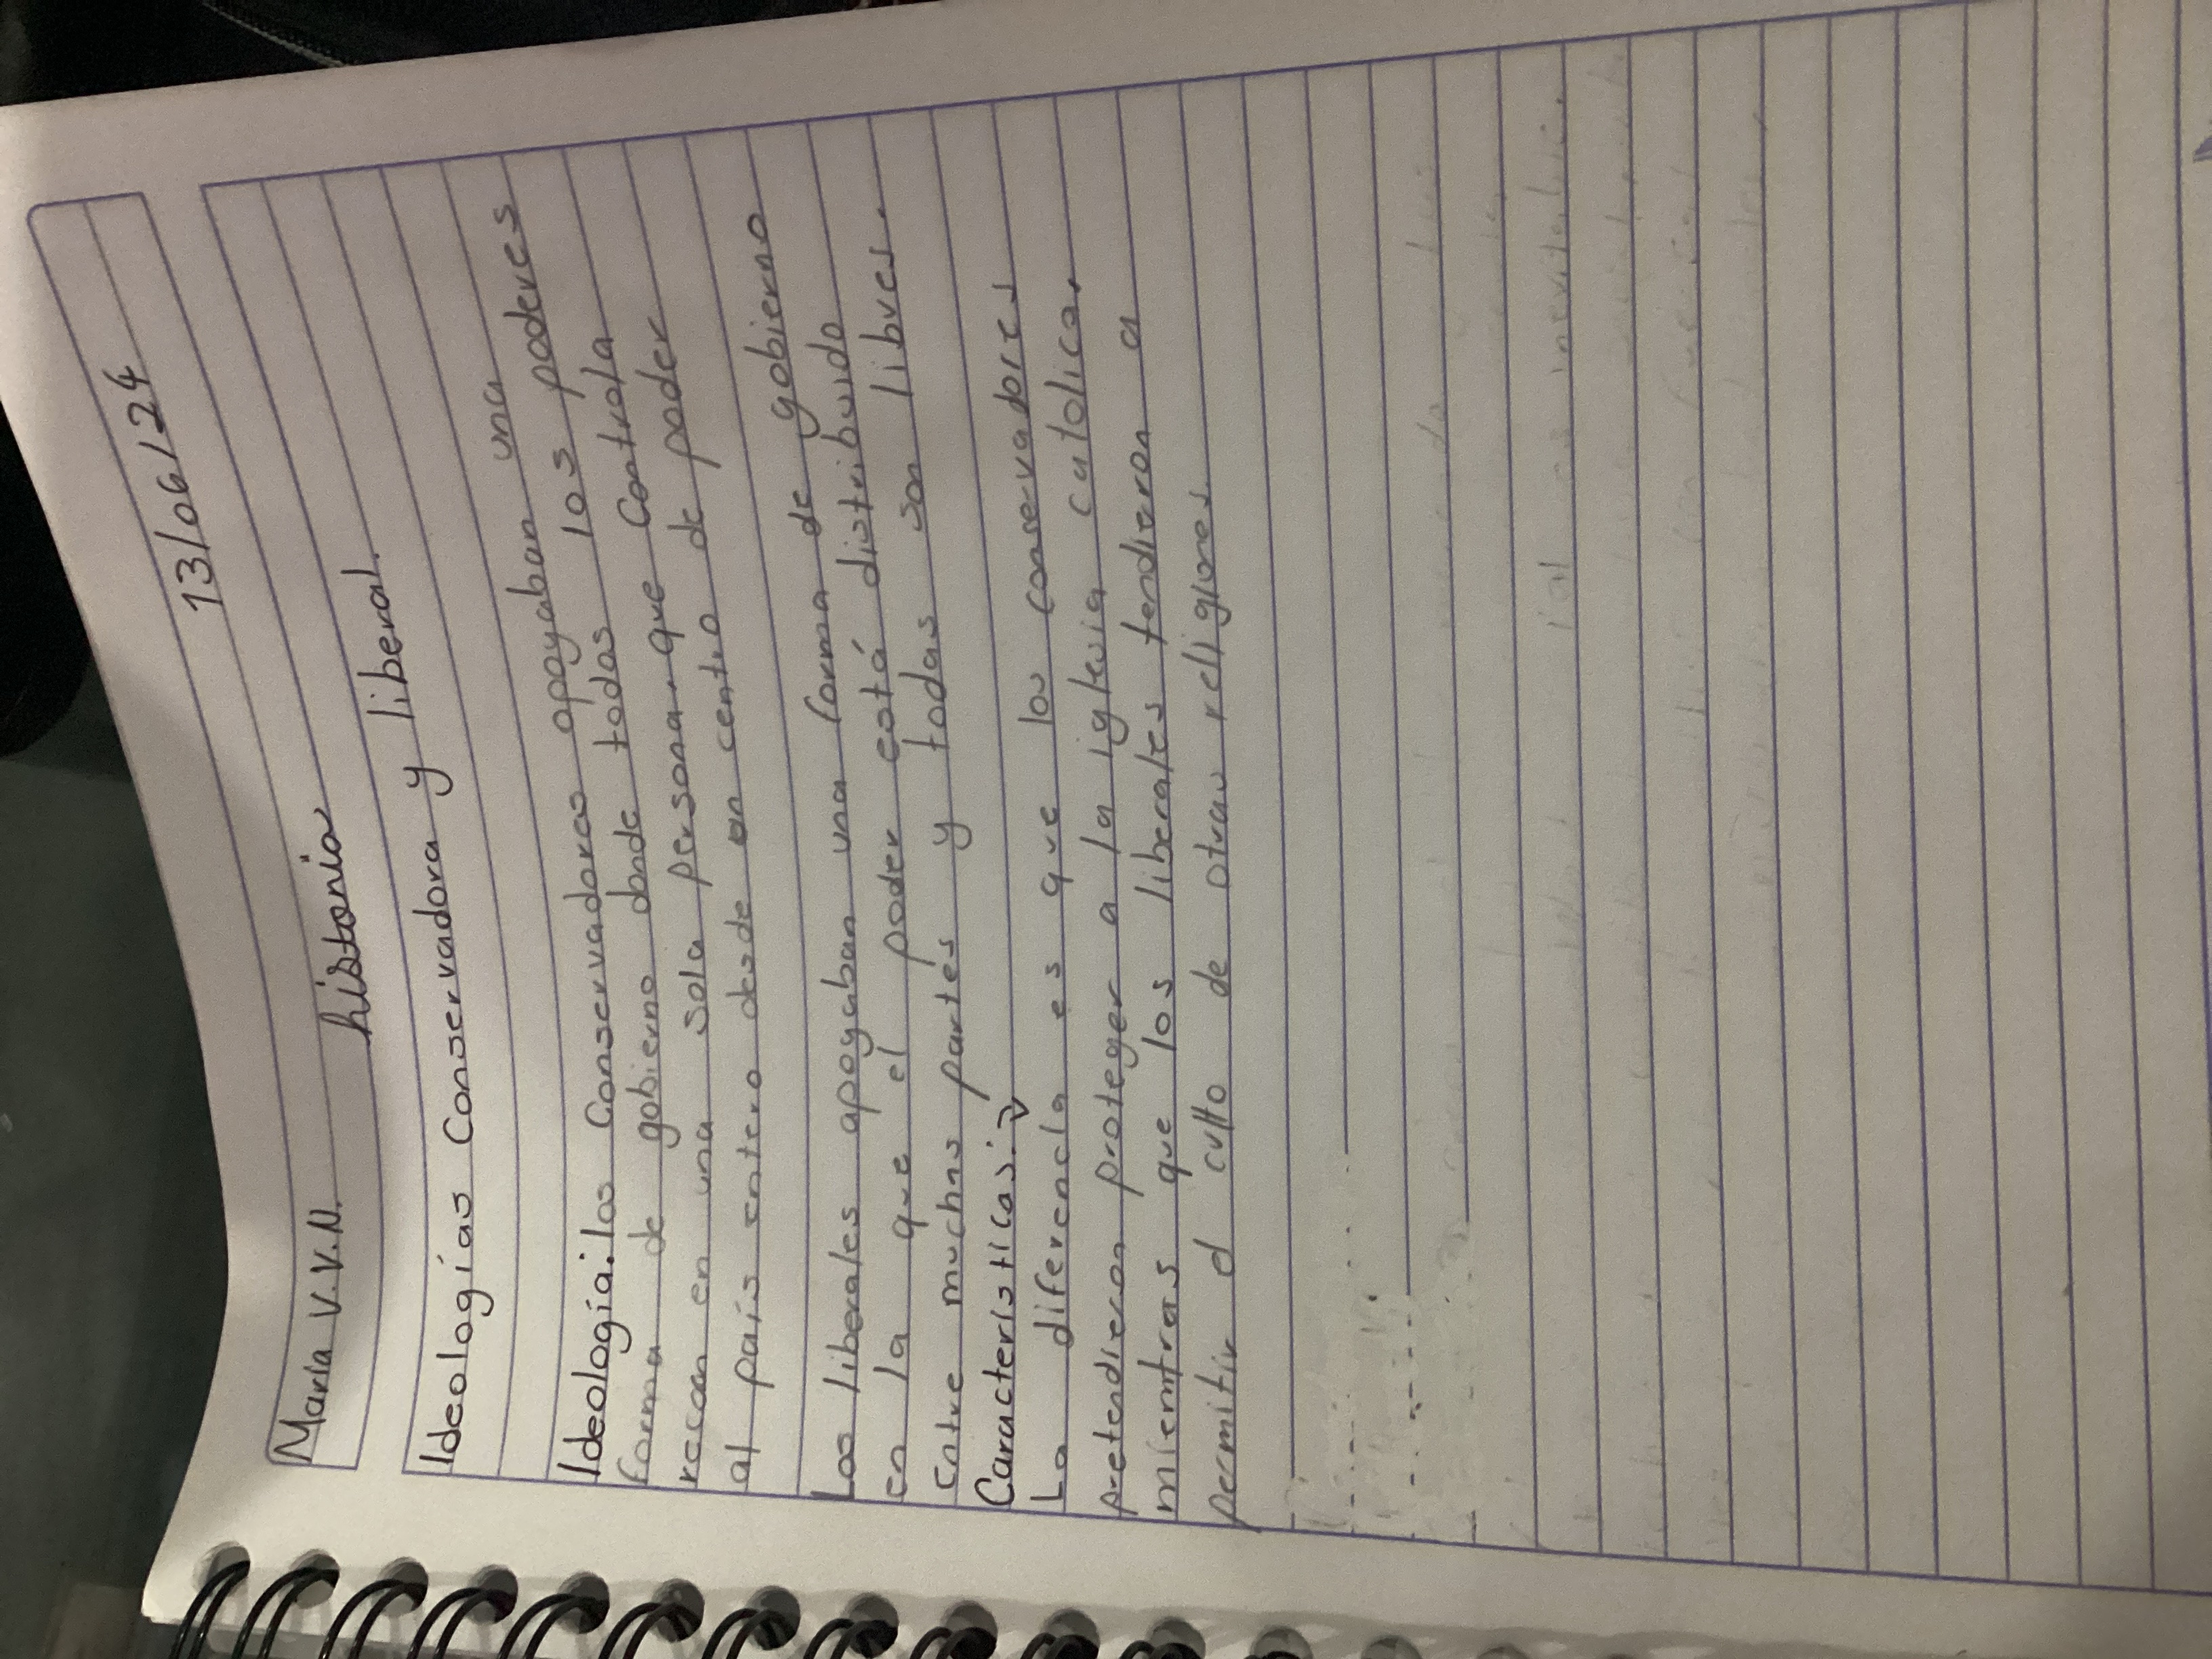 13/06/24
María V.V.N.
historia
Ideologías Conservadora y liberal.
Ideología: los Conservadores apoyaban una
forma de gobierno donde todos los poderes
recaan en una sola persona que Controla
al país entero desde un centro de poder
Los liberales apoyaban una forma de gobierno
en la que el poder está distribuido
entre muchas partes y todas son libres.
Caracteristicas:
La diferencia es que los conservadores
pretendieron proteger a la iglesia catolica.
mientras que los liberales tendieron a
permitir el culto de otras religiones